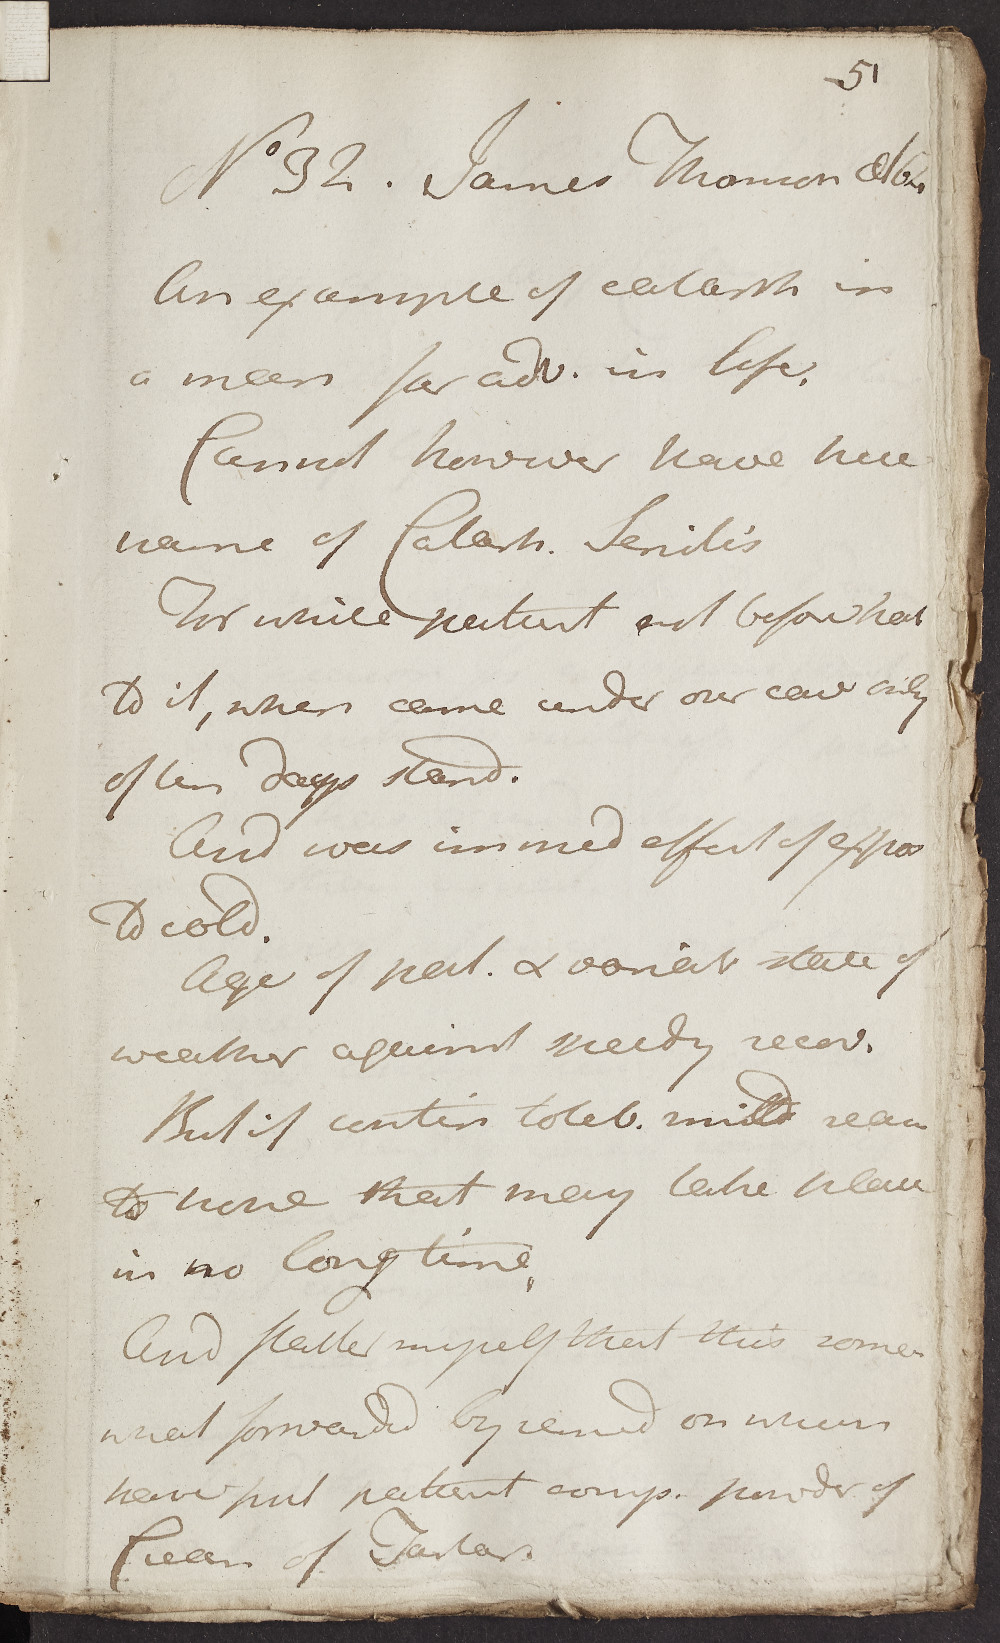 51
No 32. James Thomson Æt 62
An example of catarrh in
a man far adv. in life.
Cannot however have here
name of Catarrh. Senilis
For while patient not before hab
to it, when came under our care only
of ten days stand.
And was immed effect of expos
to cold.
Age of pat. & variab state of
weather against speedy recov.
But if contin toleb. mild reason
to hope that may take place
in no long time,
And flatter myself that this some
what forwarded by remed on which
have put patient comp. powder of
Cream of Tartar.